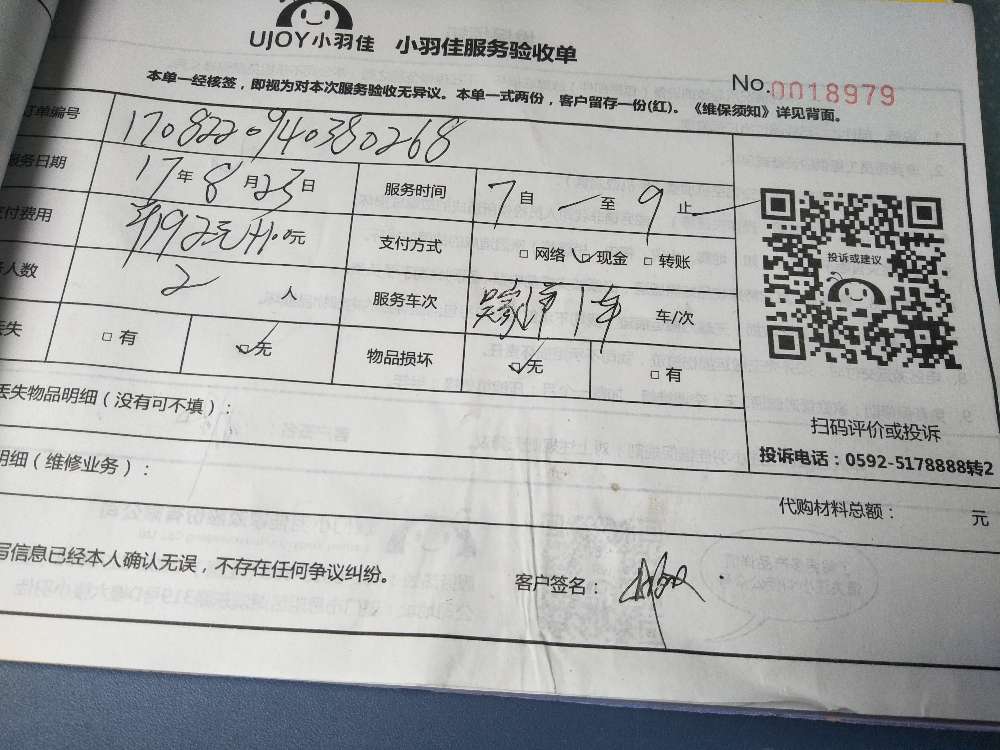 UJOY小羽佳 小羽佳服务验收单
No.0018979
本单一经核签，即视为对本次服务验收无异议。本单一式两份，客户留存一份(红)。《维保须知》详见背面。
订单编号 1708220940380268
服务日期 17年8月23日 服务时间 7自 至9止
支付费用 元 支付方式 □网络 ☑现金 □转账
人数 2人 服务车次 1车 车/次
丢失 □有 ☑无 物品损坏 ☑无 □有
投诉或建议
扫码评价或投诉
投诉电话：0592-5178888转2
丢失物品明细（没有可不填）：
明细（维修业务）：
代购材料总额： 元
写信息已经本人确认无误，不存在任何争议纠纷。 客户签名：